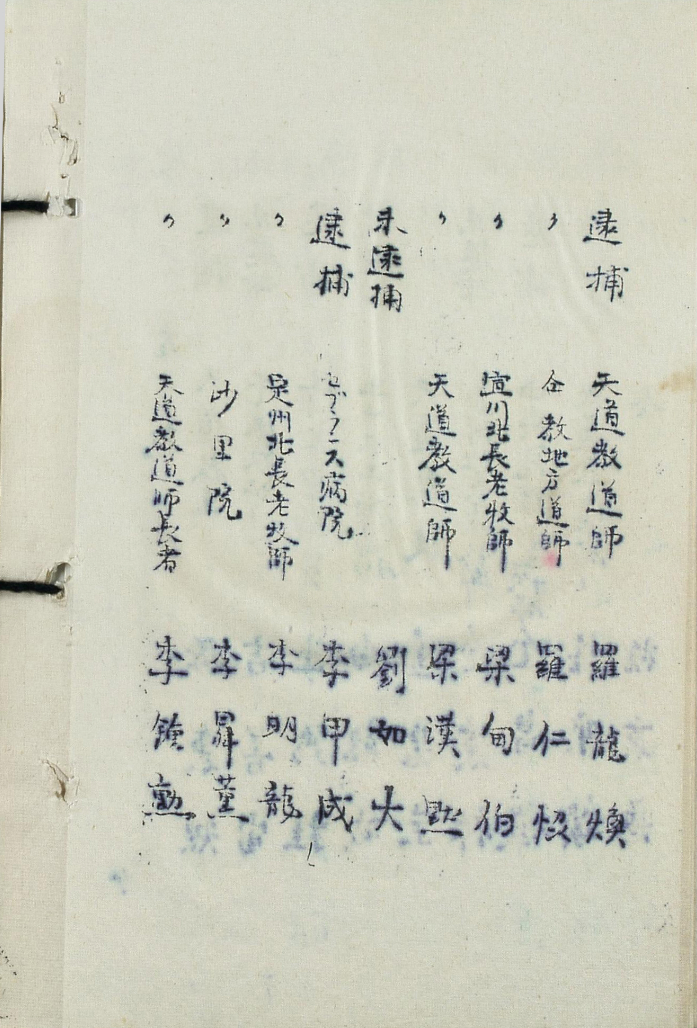 逮捕 天道教道師 羅龍煥
〃 仝教地方道師 羅仁
〃 宣川北長老牧師 梁甸伯
〃 天道教道師 梁漢黙
未逮捕 劉如大
逮捕 セブランス病院 李甲成
〃 定州北長老牧師 李明龍
〃 沙里院 李昇薫
〃 天道教道師長者 李鍾勲